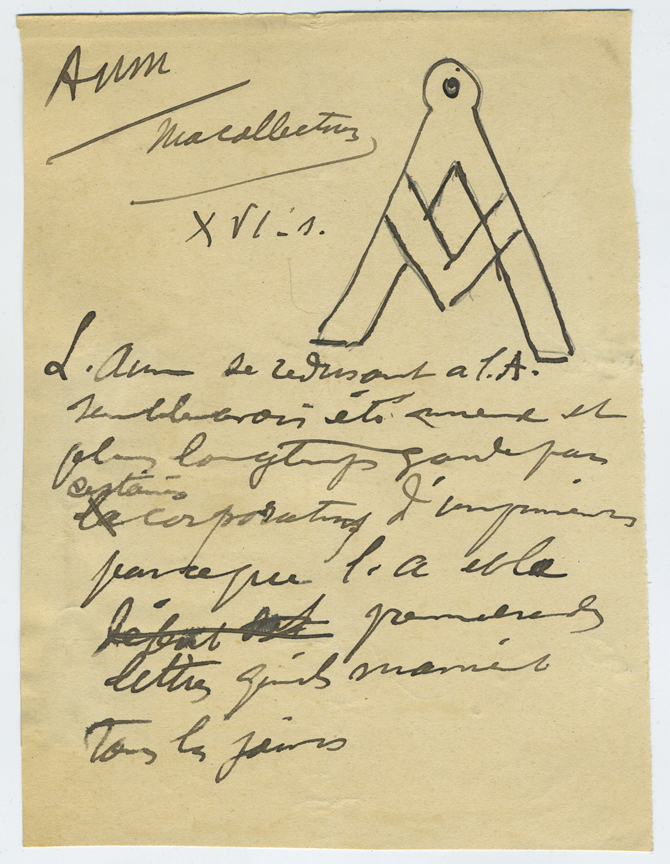 Aum
Ma collection
XVI-s.
L. Aum se réduisant a l.A.
semble avoir été et
plus longtemps gardé par
certaines
corporations d'imprimeurs
parce que l. A est la
début est première des
lettres qu'ils manient
tous les jours